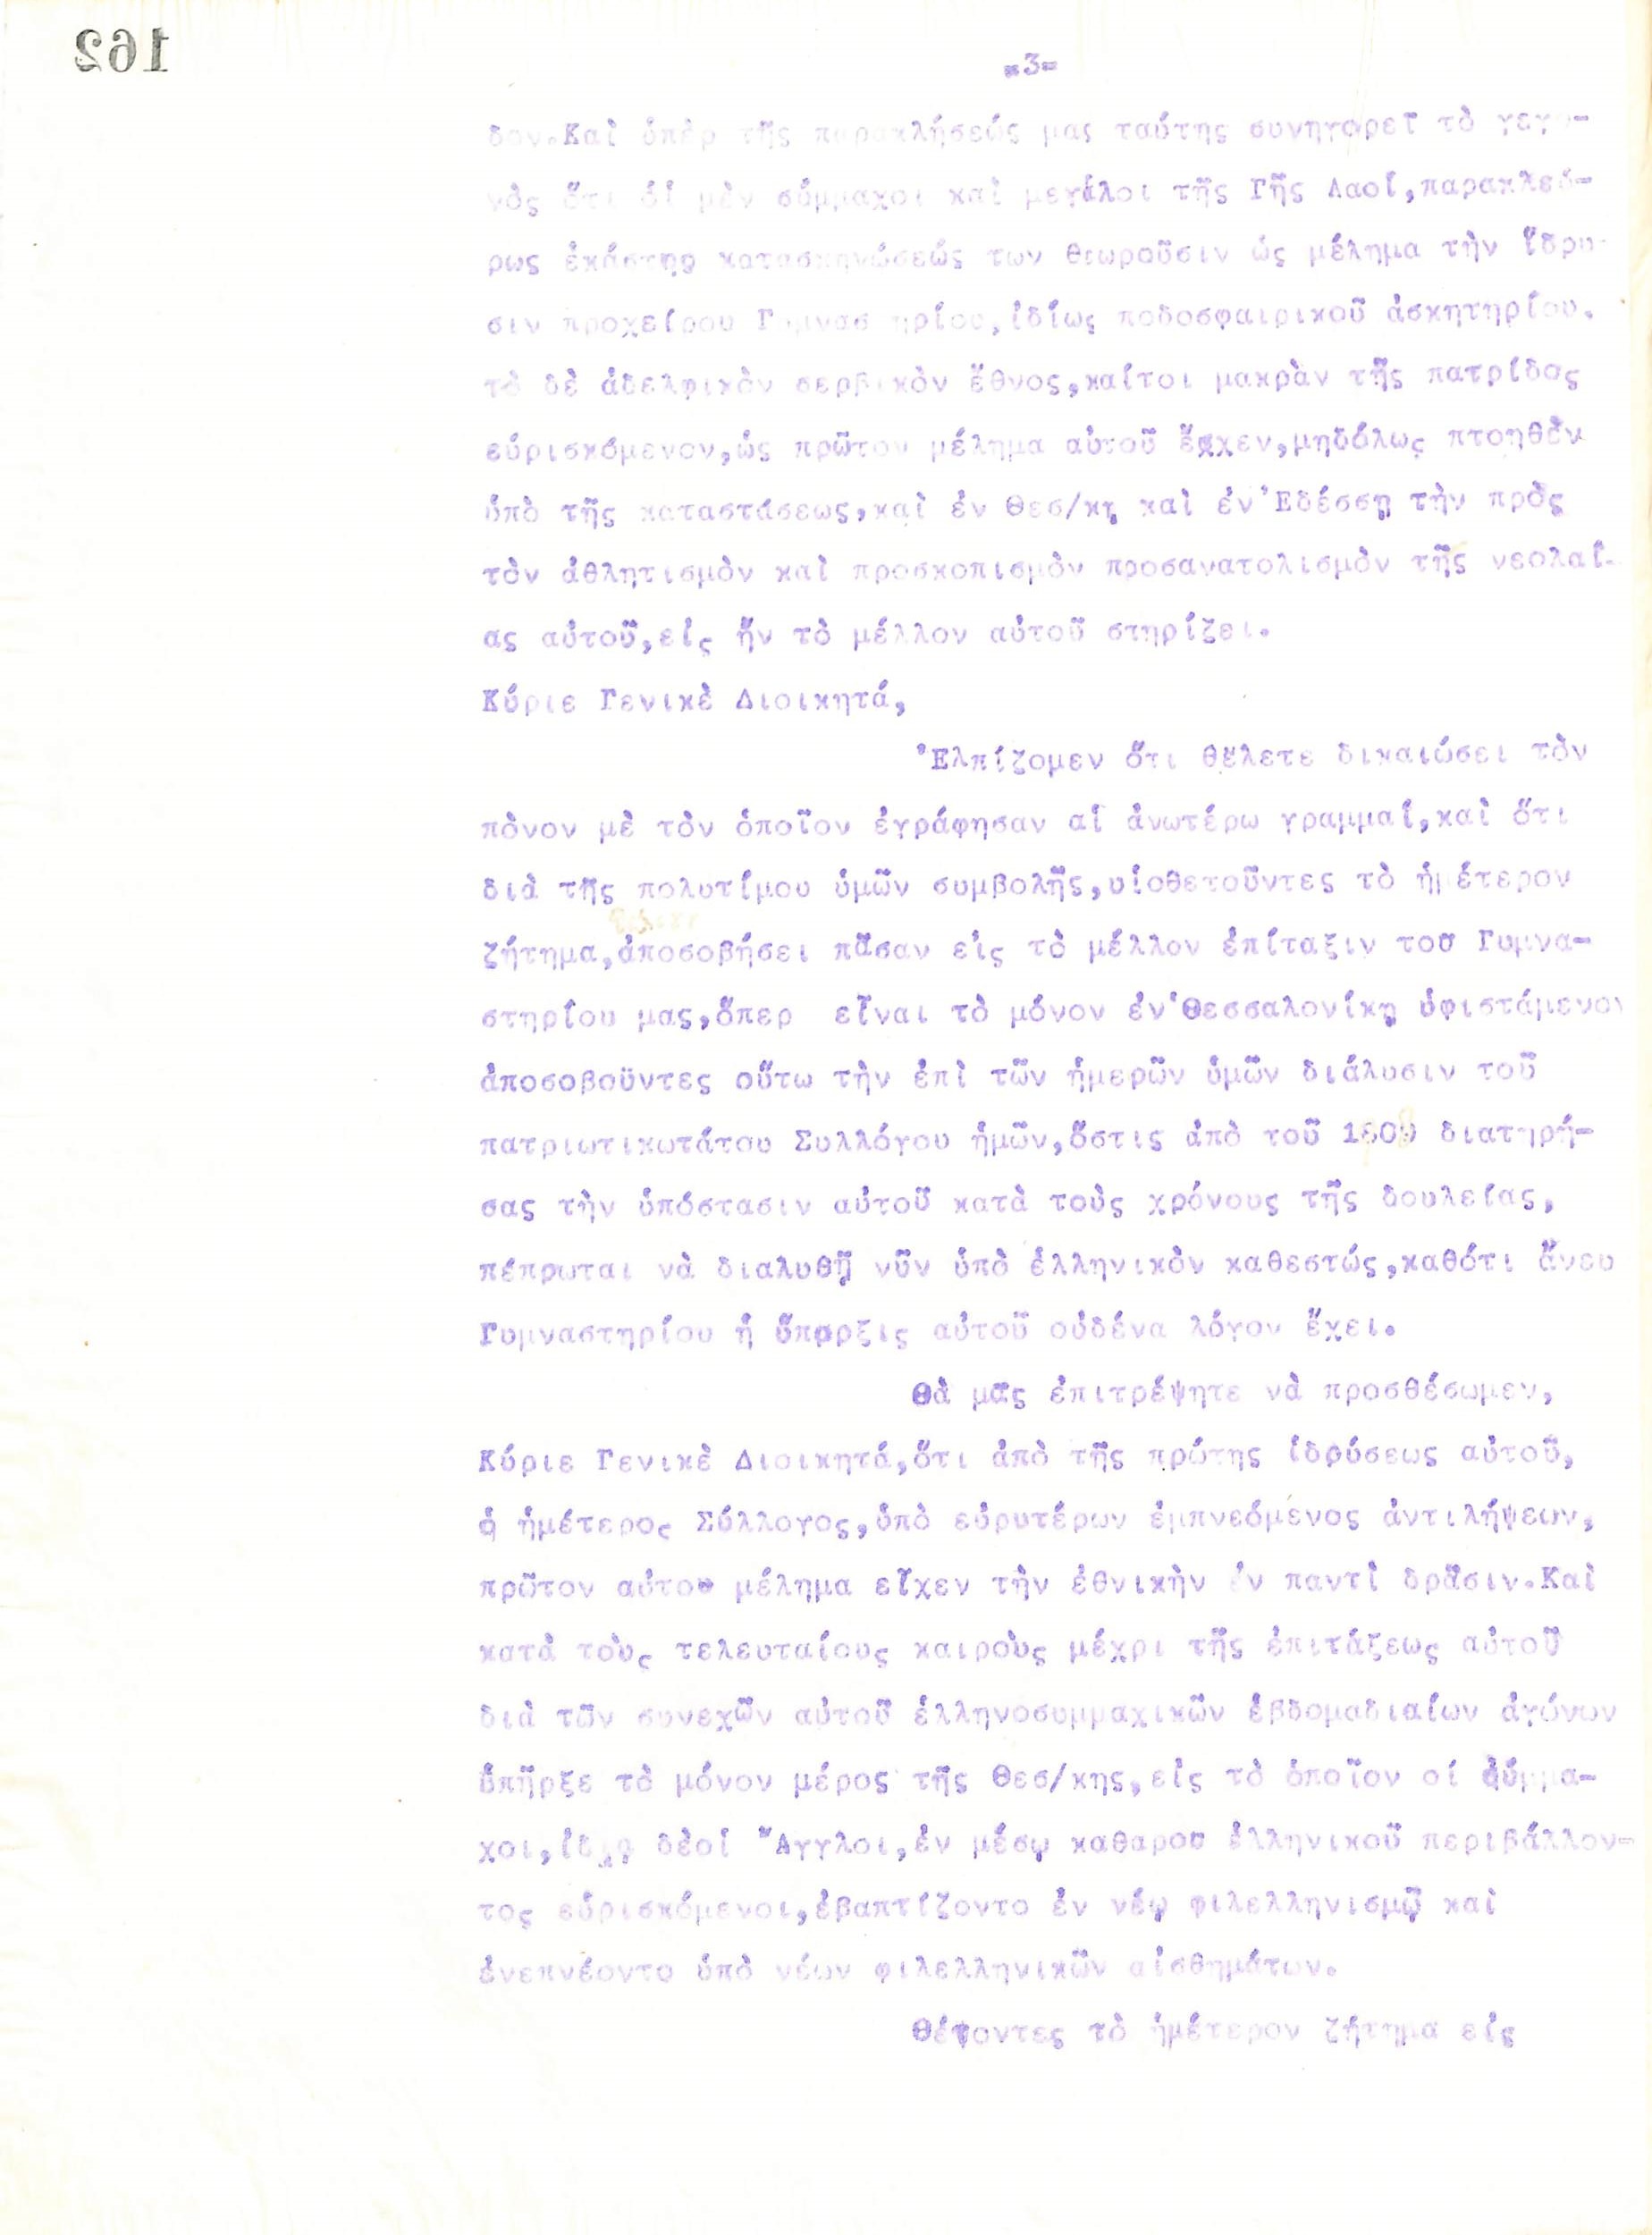 162
=3=
δον.Καὶ ὑπὲρ τῆς παρακλήσεώς μας ταύτης συνηγορεῖ τὸ γεγο-
νὸς ὅτι οἱ μὲν σύμμαχοι καὶ μεγάλοι τῆς Γῆς Λαοί,παρακλεύ-
ρως ἑκάστης κατασκηνώσεώς των θεωροῦσιν ὡς μέλημα τὴν ἵδρυ-
σιν προχείρου Γυμναστηρίου,ἰδίως ποδοσφαιρικοῦ ἀσκητηρίου.
τὸ δὲ ἀδελφικὸν σερβικὸν ἔθνος,καίτοι μακρὰν τῆς πατρίδος
εὑρισκόμενον,ὡς πρῶτον μέλημα αὐτοῦ ἔσχεν,μηδόλως πτοηθὲν
ὑπὸ τῆς καταστάσεως,καὶ ἐν Θεσ/κῃ καὶ ἐν Ἐδέσσῃ τὴν πρὸς
τὸν ἀθλητισμὸν καὶ προσκοπισμὸν προσανατολισμὸν τῆς νεολαί-
ας αὐτοῦ,εἰς ἥν τὸ μέλλον αὐτοῦ στηρίζει.
Κύριε Γενικὲ Διοικητά,
Ἐλπίζομεν ὅτι θέλετε δικαιώσει τὸν
πὸνον μὲ τὸν ὁποῖον ἐγράφησαν αἱ ἀνωτέρω γραμμαί,καὶ ὅτι
διὰ τῆς πολυτίμου ὑμῶν συμβολῆς,υἱοθετοῦντες τὸ ἡμέτερον
θέλετε
ζήτημα,ἀποσοβήσει πᾶσαν εἰς τὸ μέλλον ἐπίταξιν του Γυμνα-
στηρίου μας,ὅπερ εἶναι τὸ μόνον ἐν Θεσσαλονίκῃ ὑφιστάμενον
ἀποσοβοῦντες οὕτω τὴν ἐπὶ τῶν ἡμερῶν ὑμῶν διάλυσιν τοῦ
πατριωτικωτάτου Συλλόγου ἡμῶν,ὅστις ἀπὸ τοῦ 1908 διατηρή-
σας τὴν ὑπόστασιν αὐτοῦ κατὰ τοὺς χρόνους τῆς δουλείας,
πέπρωται νὰ διαλυθῇ νῦν ὑπὸ ἑλληνικὸν καθεστώς,καθότι ἄνευ
Γυμναστηρίου ἡ ὕπαρξις αὐτοῦ οὐδένα λόγον ἔχει.
Θὰ μᾶς ἐπιτρέψητε νὰ προσθέσωμεν,
Κύριε Γενικὲ Διοικητά,ὅτι ἀπὸ τῆς πρώτης ἱδρύσεως αὐτοῦ,
ὁ ἡμέτερος Σύλλογος,ὑπὸ εὐρυτέρων ἐμπνεόμενος ἀντιλήψεων,
πρῶτον αὐτου μέλημα εἶχεν τὴν ἐθνικὴν ἐν παντὶ δρᾶσιν.Καὶ
κατὰ τοὺς τελευταίους καιροὺς μέχρι τῆς ἐπιτάξεως αὐτοῦ
διὰ τῶν συνεχῶν αὐτοῦ ἑλληνοσυμμαχικῶν ἑβδομαδιαίων ἀγώνων
ὑπῆρξε τὸ μόνον μέρος τῆς Θεσ/κης,εἰς τὸ ὁποῖον οἱ σύμμα-
χοι,ἰδίᾳ δὲοἱ Ἄγγλοι,ἐν μέσῳ καθαρου ἑλληνικοῦ περιβάλλον-
τος εὑρισκόμενοι,ἐβαπτίζοντο ἐν νέῳ φιλελληνισμῷ καὶ
ἐνεπνέοντο ὑπὸ νέων φιλελληνικῶν αἰσθημάτων.
Θέτοντες τὸ ἡμέτερον ζήτημα εἰς